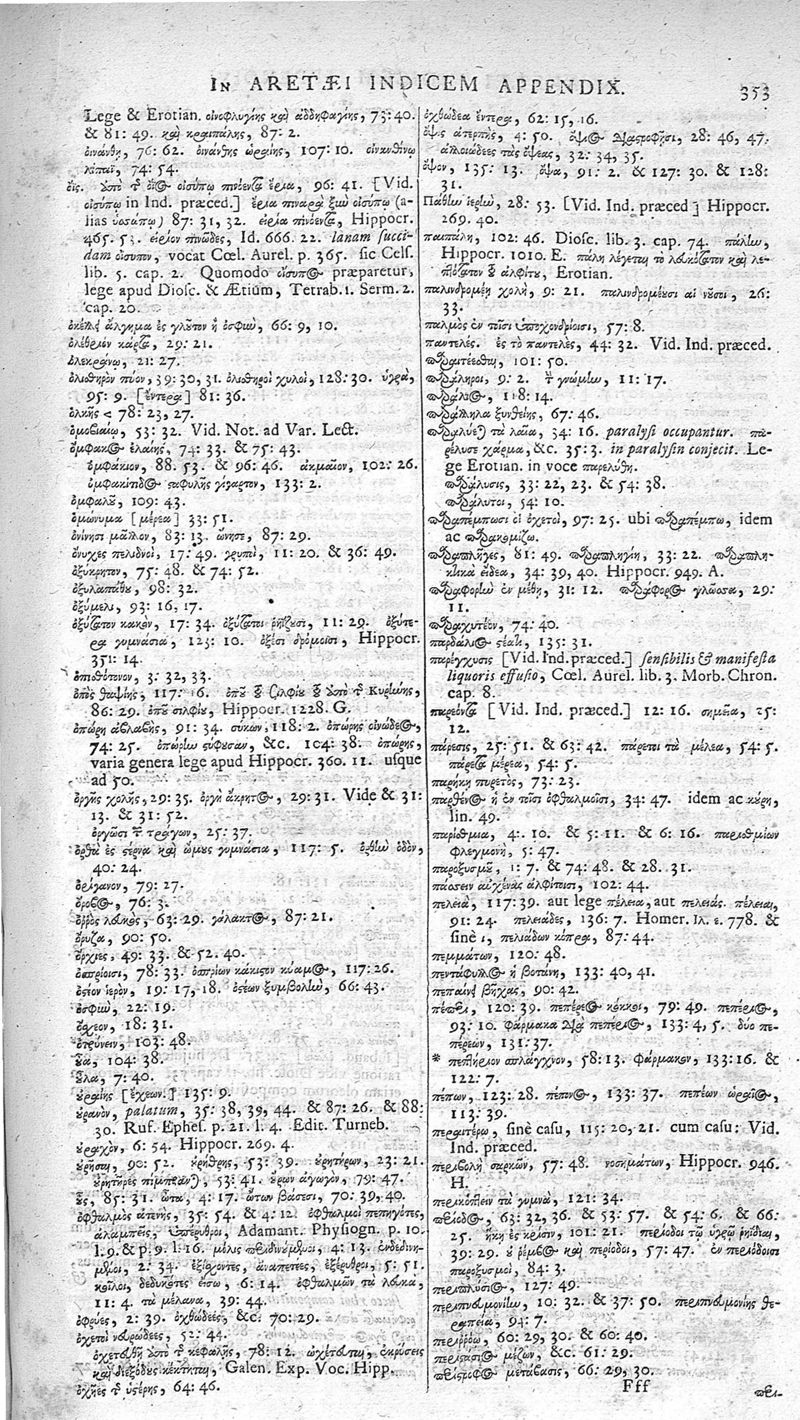 IN ARETÆI INDICEM APPENDIX.
353
Lege & Erotian. οἰνοφλυγίης καὶ ἀδδηφαγίης, 73: 40.
& 81: 49. καὶ κραιπάλης, 87: 2.
οἰνάνθη, 76: 62. οἰνάνθης ὡραίης, 107: 10.
74: 54.
96: 41. [Vid.
in Ind. præced.] (a-
lias ὑοσώπῳ) 87: 31, 32. Hippocr.
465. 53. εἴριον πινῶδες, Id. 666. 22. lanam succi-
dam οἴσυπον, vocat Cœl. Aurel. p. 365. sic Cels.
lib. 5. cap. 2. Quomodo οἴσυπος præparetur,
lege apud Diosc. & Ætium, Tetrab. 1. Serm. 2.
cap. 20.
ἄλγημα ἐς γλουτὸν ἢ ὀσφὺν, 66: 9, 10.
ὀλέθριον κάρτα, 29: 21.
ὀλεκράνῳ, 21: 27.
ὀλισθηρὸν πύον, 39: 30, 31. ὀλισθηροὶ χυλοὶ, 128: 30. ὑγρὰ,
95: 9. [ἔντερα] 81: 36.
ὁλκῆς < 78: 23, 27.
53: 32. Vid. Not. ad Var. Lect.
ὄμφακος ἐλαίης, 74: 33. & 75: 43.
ὀμφάκιον, 88. 53. & 96: 46. ἀκμαῖον, 102: 26.
σταφυλῆς γίγαρτον, 133: 2.
ὀμφαλοῦ, 109: 43.
ὁμώνυμα [μέρεα] 33: 51.
ὀνίνησι μᾶλλον, 83: 13. ὤνησε, 87: 29.
ὄνυχες πελιδνοὶ, 17: 49. γρυποὶ, 11: 20. & 36: 49.
ὀξύκρητον, 75: 48. & 74: 52.
ὀξυλαπάθου, 98: 32.
ὀξύμελι, 93: 16, 17.
ὀξύτατον κακὸν, 17: 34. 11: 29. ὀξύτε-
ρα γυμνάσια, 123: 10. ὀξέσι δρόμοισι, Hippocr.
351: 14.
ὀπισθότονον, 3: 32, 33.
ὀπὸς θαψίης, 117: 16. ὀποῦ τοῦ σιλφίου τοῦ ὑπὸ τῆς Κυρήνης,
86: 29. ὀποῦ σιλφίου, Hippocr. 1228. G.
ὀπώρη ἀβλαβὴς, 91: 34. σύκων, 118: 2. ὀπώρης οἰνώδεος,
74: 25. ὀπώρην στύφουσαν, &c. 104: 38. ὀπώρης,
varia genera lege apud Hippocr. 360. 11. usque
ad 50.
ὀργῆς χολῆς, 29: 35. ὀργὴ ἄκρητος, 29: 31. Vide & 31:
13. & 31: 52.
ὀργῶσι τῶν τράγων, 25: 37.
ὀρθὰ ἐς στέρνα καὶ ὤμους γυμνάσια, 117: 5. ὀρθὴν ὁδὸν,
40: 24.
ὀρίγανον, 79: 27.
ὄροβος, 76: 3.
ὀῤῥὸς λευκὸς, 63: 29. γάλακτος, 87: 21.
ὄρυζα, 90: 50.
ὄρχιες, 49: 33. & 52. 40.
ὀσπρίοισι, 78: 33. ὀσπρίων κάκιστον κύαμος, 117: 26.
ὀστέον ἱερὸν, 19: 17, 18. ὀστέων ξυμβολὴν, 66: 43.
ὀσφὺν, 22: 19.
ὄσχεον, 18: 31.
ὀτρύνειν, 103: 48.
οὖα, 104: 38.
οὖλα, 7: 40.
οὐραίης [ἔχεων.] 135: 9.
οὐρανὸν, palatum, 35: 38, 39, 44. & 87: 26. & 88:
30. Ruf. Ephes. p. 21. l. 4. Edit. Turneb.
οὐραχὸν, 6: 54. Hippocr. 269. 4.
οὐρῆσαι, 90: 52. οὐρήθρης, 53: 39. οὐρητήρων, 23: 21.
οὐρητῆρες πίμπρανται, 53: 41. οὔρων ἀγωγὸν, 79: 47.
οὖς, 85: 31. ὦτα, 4: 17. ὤτων βάσεσι, 70: 39, 40.
ὀφθαλμὸς ἀτενὴς, 35: 54. & 4: 12. ὀφθαλμοὶ πεπηγότες,
ἀλαμπέες, ὑπέρυθροι, Adamant. Physiogn. p. 10.
l. 9. & p. 9. l. 16. μόλις περιδινούμενοι, 4: 13. ἐνδεδινη-
μένοι, 2: 34. ἐξίσχοντες, ἀναπετέες, ἐξέρυθροι, 5: 51.
κοῖλοι, δεδυκότες εἴσω, 6: 14. ὀφθαλμῶν τὰ λευκὰ,
11: 4. τὰ μέλανα, 39: 44.
ὀφρύες, 2: 39. ὀχθώδεες, &c. 70: 29.
ὀχετοὶ νευρώδεες, 52: 44.
ὀχετευθῇ ὑπὸ τῆς κεφαλῆς, 78: 12. ὠχέτευται, ἐκρύσεις
καὶ διεξόδους κέκτηται, Galen. Exp. Voc. Hipp.
ὀχῆες τῆς ὑστέρης, 64: 46.
ὀχθώδεα ἔντερα, 62: 15, 16.
ὄψις ἀτερπὴς, 4: 50. ὄψιος διαστροφῇσι, 28: 46, 47.
ἀλλοιώδεες τὰς ὄψεας, 32: 34, 35.
ὄψον, 135: 13. ὄψα, 91: 2. & 127: 30. & 128:
31.
Πάθην ἱερὴν, 28: 53. [Vid. Ind. præced] Hippocr.
269. 40.
παιπάλη, 102: 46. Diosc. lib. 3. cap. 74. πάλην,
Hippocr. 1010. E. πάλη λέγεται τὸ λευκότατον καὶ λε-
πτότατον τοῦ ἀλφίτου, Erotian.
παλινδρομέῃ χολὴ, 9: 21. παλινδρομέουσι αἱ νοῦσοι, 26:
33.
παλμὸς ἐν τοῖσι ὑποχονδρίοισι, 57: 8.
παντελές. ἐς τὸ παντελὲς, 44: 32. Vid. Ind. præced.
παραιτέεσθαι, 101: 50.
παράληροι, 9: 2. τὴν γνώμην, 11: 17.
118: 14.
παράλληλα ξυνθείης, 67: 46.
παραλύεται τὰ λαιὰ, 34: 16. paralysi occupantur. πα-
ρέλυσε χάρμα, &c. 35: 3. in paralysin conjecit. Le-
ge Erotian. in voce παρελύθη.
παράλυσις, 33: 22, 23. & 54: 38.
παράλυτοι, 54: 10.
παραπέμπωσι οἱ ὀχετοὶ, 97: 25. ubi παραπέμπω, idem
ac παρακομίζω.
παραπλῆγες, 81: 49. παραπληγίη, 33: 22. παραπλη-
κτικὰ εἴδεα, 34: 39, 40. Hippocr. 949. A.
παραφορὴν ἐν μέθῃ, 31: 12. παράφορος γλῶσσα, 29:
11.
παραχυτέον, 74: 40.
παρδάλιος στέατι, 135: 31.
παρέγχυσις [Vid. Ind. præced.] sensibilis & manifesta
liquoris effusio, Cœl. Aurel. lib. 3. Morb. Chron.
cap. 8.
παρεόντα [Vid. Ind. præced.] 12: 16. σημεῖα, 25:
12.
πάρεσις, 25: 51. & 63: 42. πάρετοι τὰ μέλεα, 54: 5.
πάρετα μέρεα, 54: 5.
παρήκῃ πυρετὸς, 73: 23.
παρθένος ἡ ἐν τοῖσι ὀφθαλμοῖσι, 34: 47. idem ac κούρη,
lin. 49.
παρίσθμια, 4: 10. & 5: 11. & 6: 16. παρισθμίων
φλεγμονὴ, 5: 47.
παροξυσμοῦ, 1: 7. & 74: 48. & 28. 31.
πάσσειν αὐχένας ἀλφίτοισι, 102: 44.
πελειὰ, 117: 39. aut lege πέλεια, aut πελειάς. πέλειαι,
91: 24. πελειάδες, 136: 7. Homer. Ιλ. ε. 778. &
sinè ι, πελιάδων κόπρα, 87: 44.
πεμμάτων, 120: 48.
πεντάφυλλος ἡ βοτάνη, 133: 40, 41.
πεπαίνει βῆχας, 90: 42.
πέπερι, 120: 39. πεπέρεος κόκκοι, 79: 49. πεπέριος,
93: 10. φάρμακα διὰ πεπέριος, 133: 4, 5. δύο πε-
πέρεων, 131: 37.
* πεπτήριον σπλάγχνον, 58: 13. φάρμακον, 133: 16. &
122: 7.
πέπων, 123: 28. πέπονος, 133: 37. πεπόνων ὡραῖος,
113: 39.
περαιτέρω, sinè casu, 115: 20, 21. cum casu: Vid.
Ind. præced.
περιβολὴ σαρκῶν, 57: 48. νοσημάτων, Hippocr. 946.
H.
περικόπτειν τὰ γυμνὰ, 121: 34.
περίοδος, 63: 32, 36. & 53: 57. & 54: 6. & 66:
25. ἥκῃ ἐς κρίσιν, 101: 21. περίοδοι τῶν ὑγρῶν ῥηΐδιαι,
39: 29. οὐ ῥέμβος καὶ περίοδοι, 57: 47. ἐν περιόδοισι
παροξυσμοὶ, 84: 3.
127: 49.
περιπνευμονίην, 10: 32. & 37: 50. περιπνευμονίης θε-
ραπεία, 94: 7.
περιῤῥόῳ, 60: 29, 30. & 60: 40.
περίστασις μέζων, &c. 61: 29.
μετάβασις, 66: 29, 30.
Fff
περι-